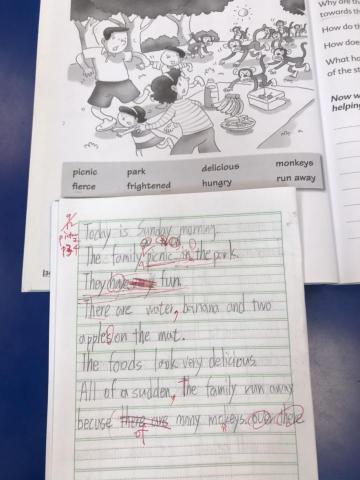 Why are th
towards th
How do th
How does
What ha
of the st
Now w
helping
picnic park delicious monkeys
fierce frightened hungry run away
Today is Sunday morning.
The family picnic in the park.
They have fun.
There are water, banana and two
apples on the mat.
The foods look very delicious.
All of a sudden, the family run away
becuse there are many mokeys over there
of